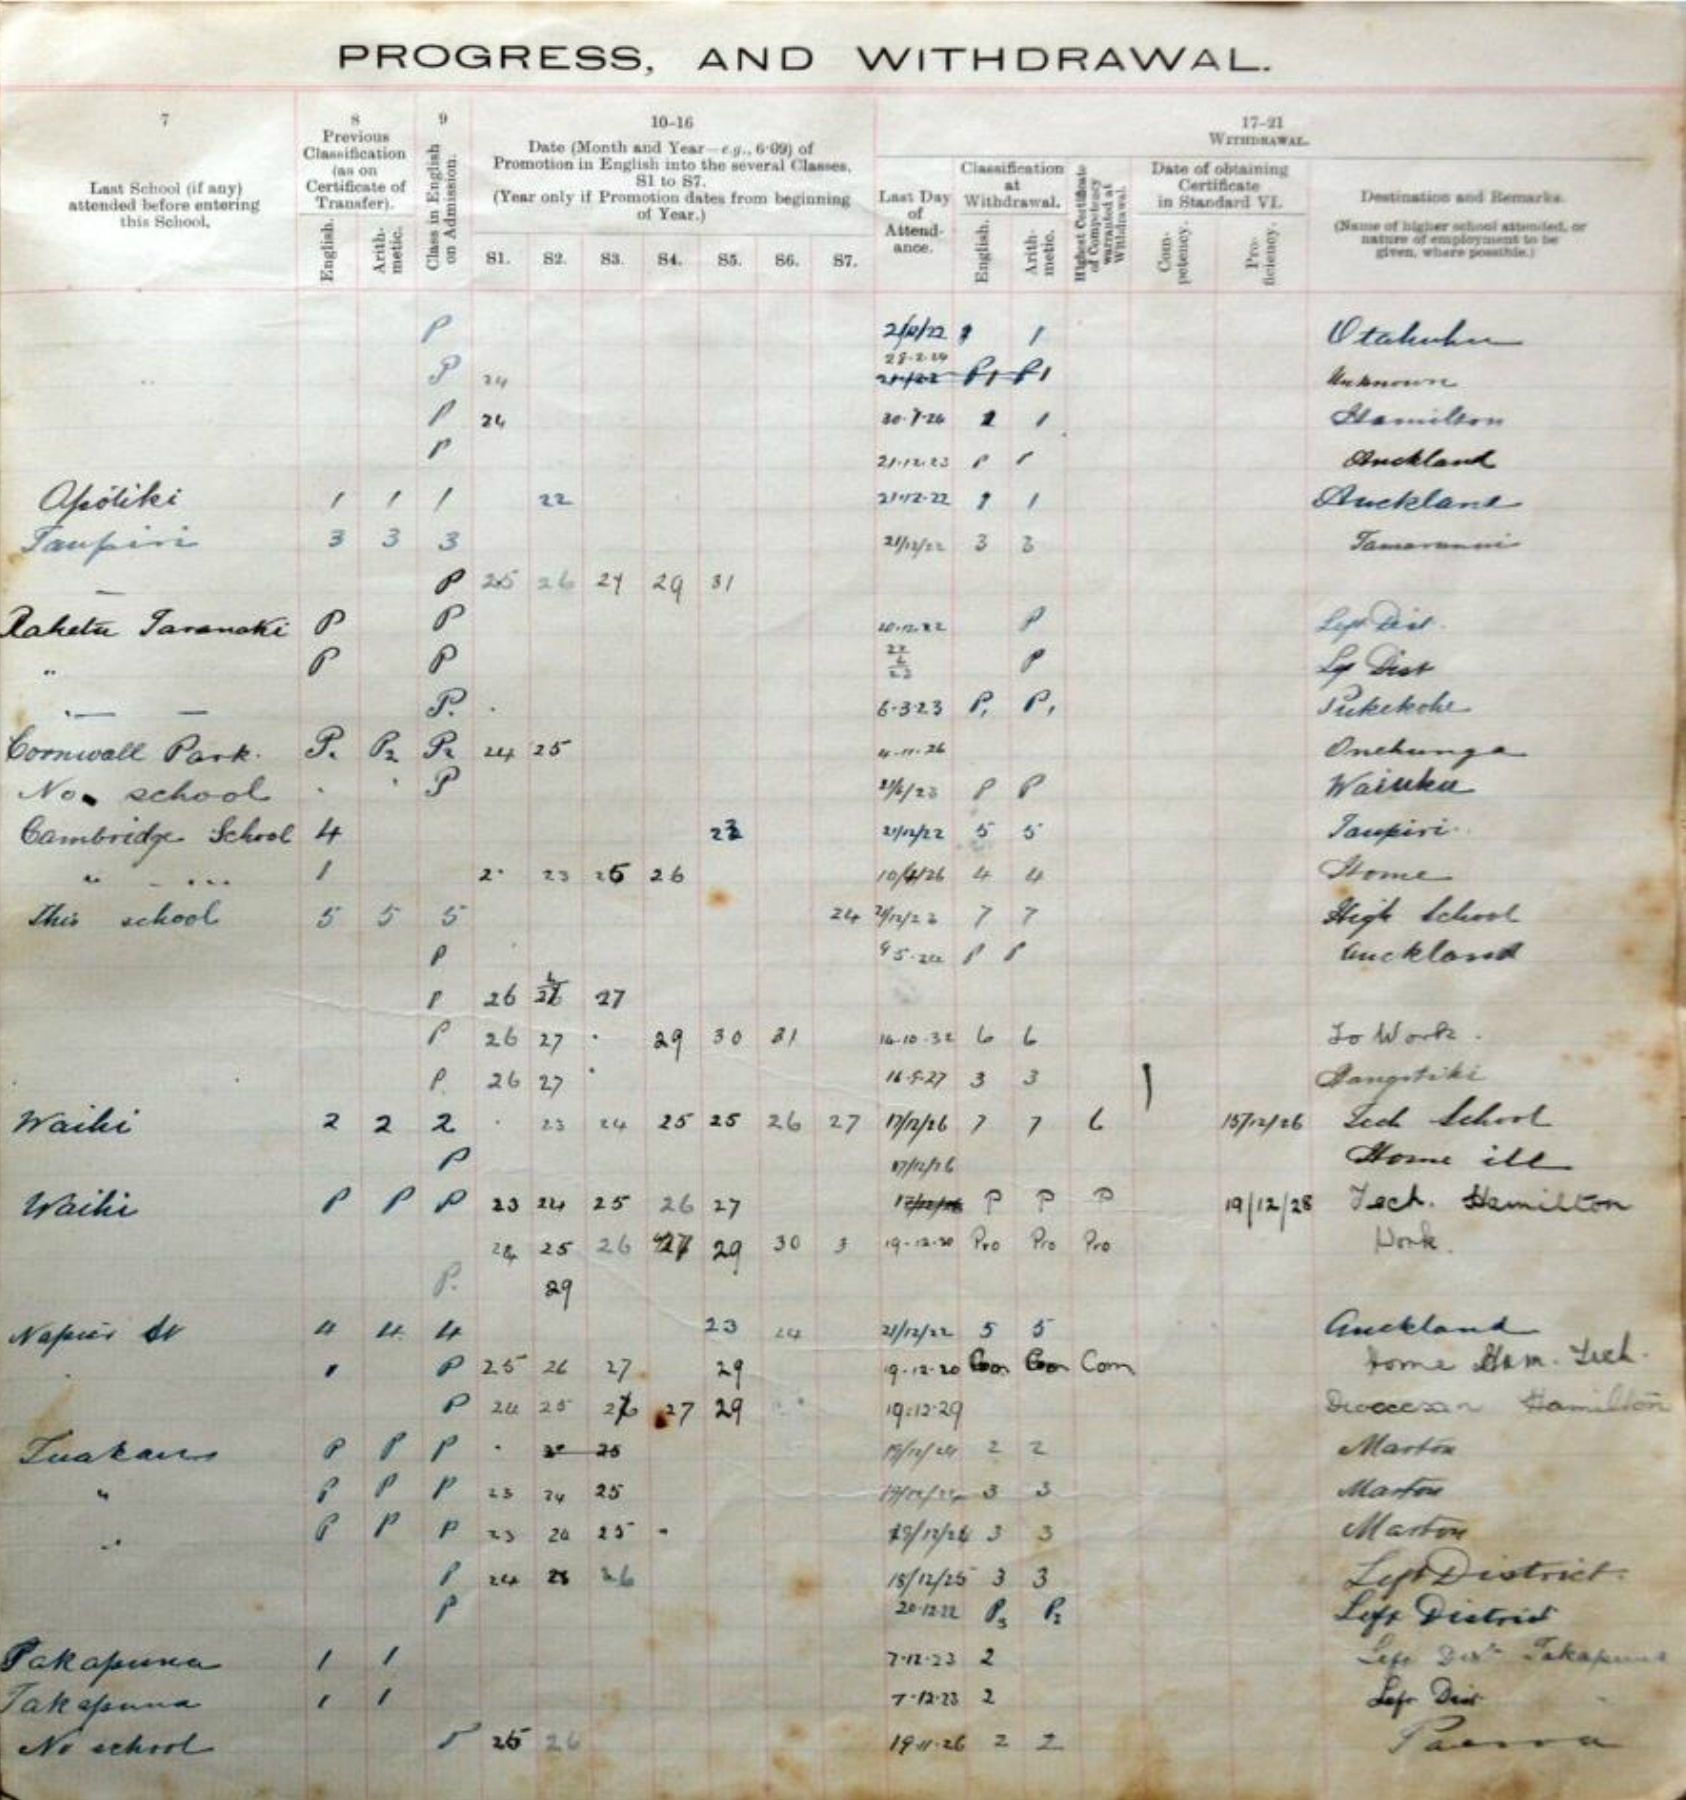 PROGRESS, AND WITHDRAWAL.
7
Last School (if any) attended before entering this School.
8
Previous Classification (as on Certificate of Transfer).
English.
Arith-metic.
9
Class in English on Admission.
10-16
Date (Month and Year—e.g., 6·09) of Promotion in English into the several Classes, S1 to S7.
(Year only if Promotion dates from beginning of Year.)
S1. S2. S3. S4. S5. S6. S7.
17-21
WITHDRAWAL.
Last Day of Attend-ance.
Classification at Withdrawal.
English.
Arith-metic.
Highest Certificate of Competency warranted at Withdrawal.
Date of obtaining Certificate in Standard VI.
Com-petency.
Pro-ficiency.
Destination and Remarks.
(Name of higher school attended, or nature of employment to be given, where possible.)
P 1 Otahuhu
P 24 28·2·24 P1 P1 Unknown
P 24 1 Hamilton
P 21·12·23 P P Auckland
Opotiki 1 1 1 22 21·12·22 1 1 Auckland
Taupiri 3 3 3 21/12/22 3 3
P 25 26 27 29 31
Taranaki P P P Left Dist.
" P P 22/6/23 P Dist
P. 6·3·23 P1 P1 Pukekohe
Cornwall Park. P2 P2 24 25 4·11·26 Onehunga
No school P P P Waiuku
Cambridge School 4 21/12/22 5 5 Taupiri
" 1 23 26 4 4 Home
This school 5 5 5 24 7 7 High School
P P P Auckland
P 26 27
P 26 27 29 30 31 14·10·32 6 6 To Work.
P. 26 27 3 3
Waihi 2 2 2 23 24 25 25 26 27 17/12/26 7 7 6 15/12/26 Tech School
P 17/12/26 Home ill
Waihi P P P 23 24 25 26 27 17/12/26 P P P 19/12/28 Tech. Hamilton
24 25 26 27 29 30 3 19·12·30 Pro Pro Pro Work.
P. 29
Napier St 4 4 4 23 24 21/12/22 5 5 Auckland
P 25 26 27 29 Com Com Com Home Ham. Tech.
P 24 25 27 29 19:12·29 Diocesan Hamilton
P P P 25 2 2 Marton
" P P P 23 24 25 3 3 Marton
" P P P 23 25 3 3 Marton
P 24 26 18/12/25 3 3 Left District.
P 20·12·22 P3 P2 Left District
Takapuna 1 1 7·12·23 2 Left Dist Takapuna
Takapuna 1 1 7·12·23 2 Left Dist
No school 25 26 19·11·26 2 2 Paeroa